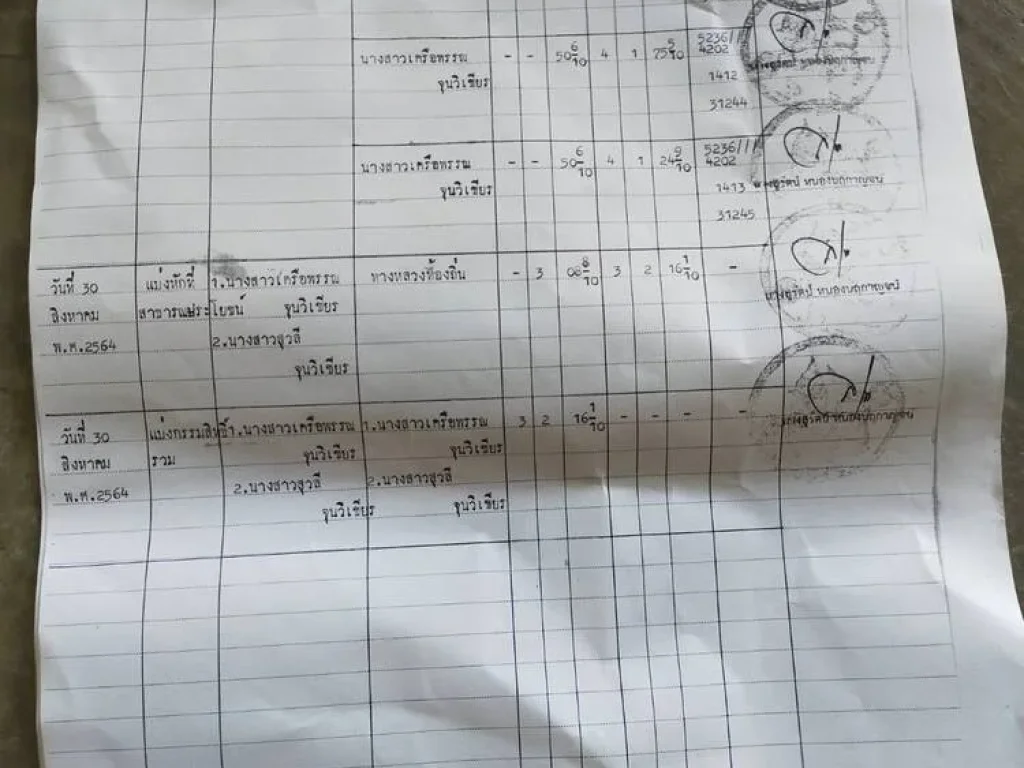 นางสาวเครือพรรณ - - 50 6/10 4 1 75 5/10 5236///
4202
ขุนวิเชียร 1412
31244
นางสาวเครือพรรณ - - 50 6/10 4 1 24 9/10 5236///
4202
ขุนวิเชียร 1413
31245
วันที่ 30 แบ่งหักที่ 1.นางสาวเครือพรรณ ทางหลวงท้องถิ่น - 3 08 8/10 3 2 16 1/10 -
สิงหาคม สาธารณประโยชน์ ขุนวิเชียร
พ.ศ.2564 2.นางสาวสุวลี
ขุนวิเชียร
วันที่ 30 แบ่งกรรมสิทธิ์ 1.นางสาวเครือพรรณ 1.นางสาวเครือพรรณ 3 2 16 1/10 - - - -
สิงหาคม รวม ขุนวิเชียร ขุนวิเชียร
พ.ศ.2564 2.นางสาวสุวลี 2.นางสาวสุวลี
ขุนวิเชียร ขุนวิเชียร